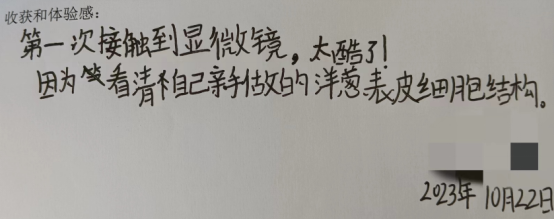 收获和体验感：
第一次接触到显微镜，太酷了！
因为看清自己亲手做的洋葱表皮细胞结构。
2023年10月22日